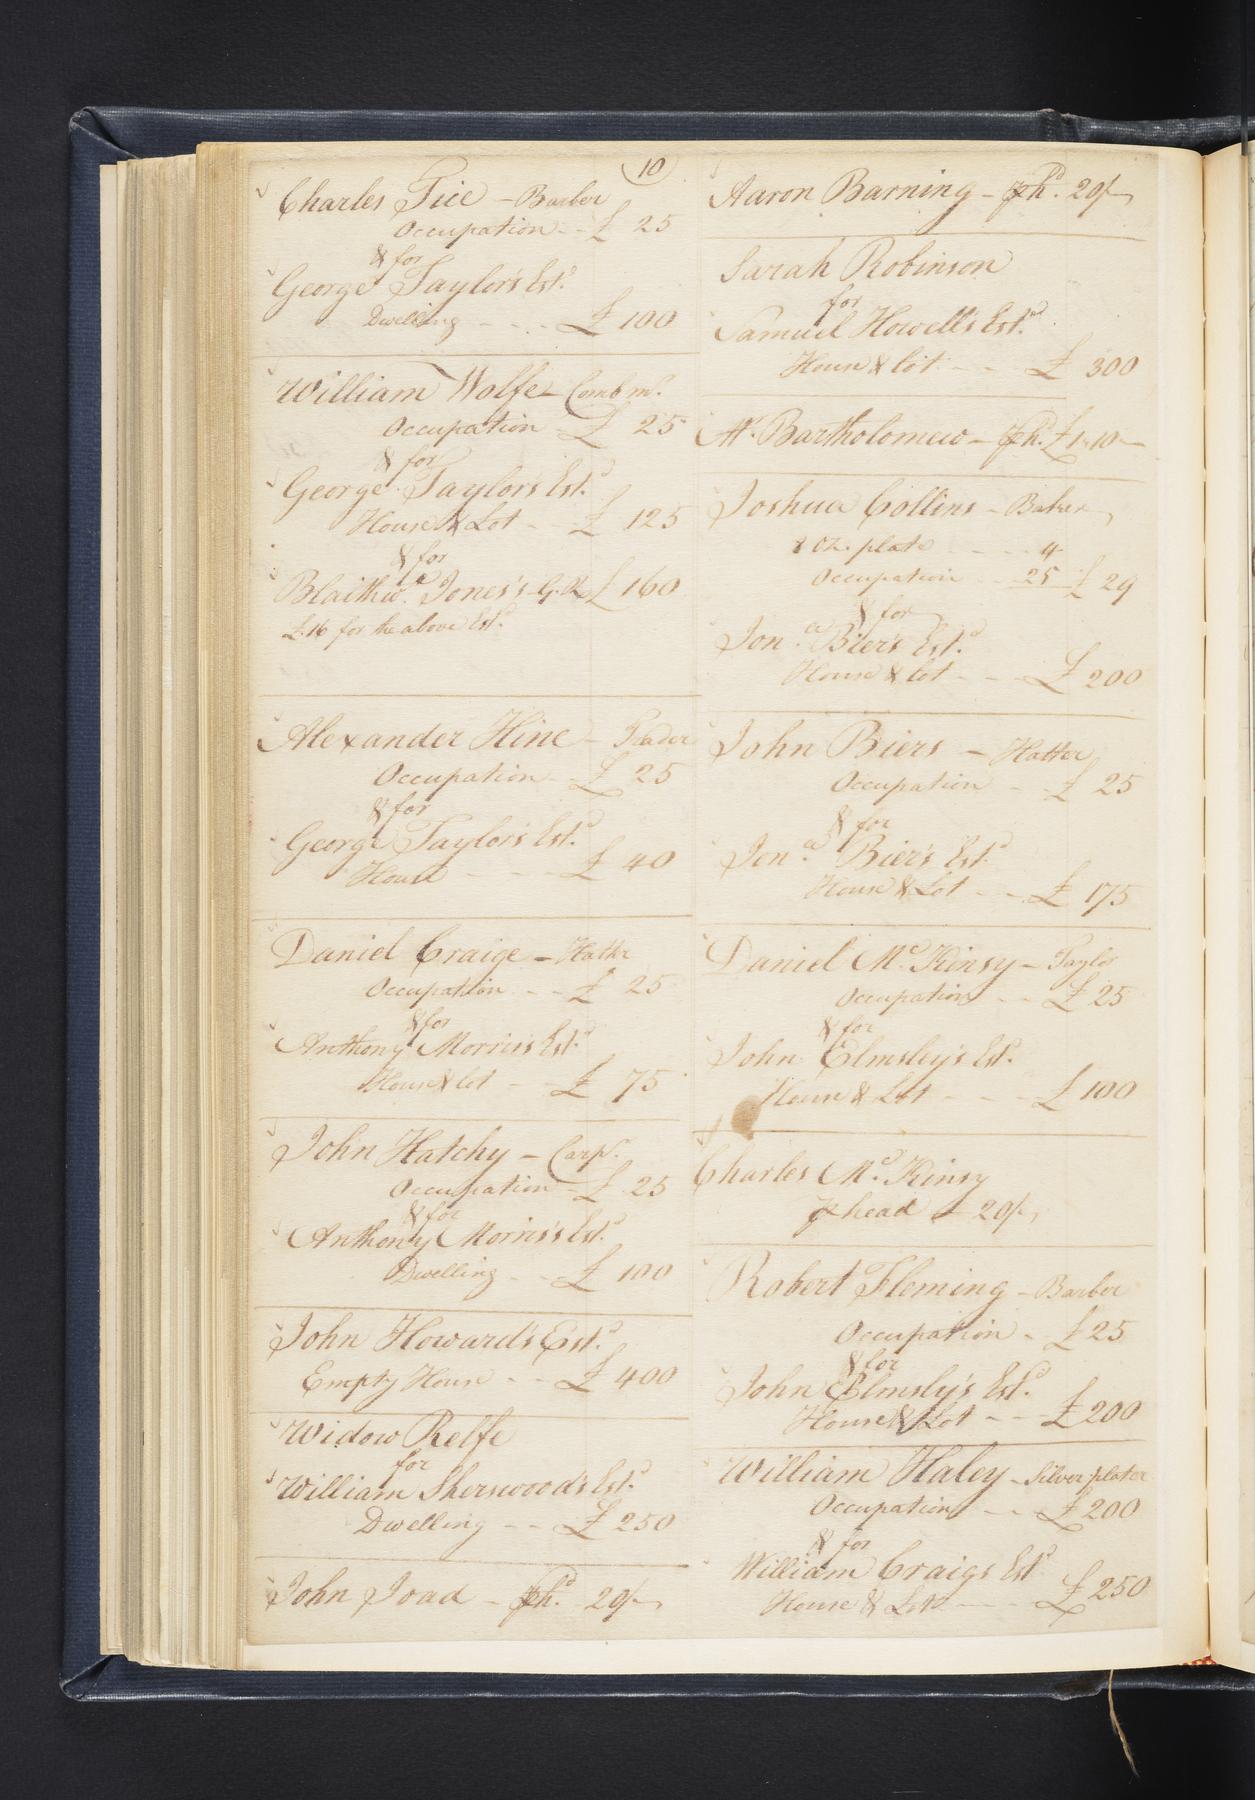 10
Charles Tice - Barber
Occupation - - £ 25
& for
George Taylor's Estd
Dwelling - - - - £ 100
William Wolfe - Comb mr.
Occupation - £ 25
& for
George Taylor's Estd
House & Lot - - £ 125
& for
Jones's G. R £ 160
£ 16 for the above Estd.
Alexander Hine - Trader
Occupation - £ 25
& for
George Taylor's Estd.
House - - - - £ 40
Daniel Craige - Hatter
Occupation - - £ 25
& for
Anthony Morris's Estd.
House & lot - - £ 75
John Hatchy - Carpr.
Occupation - £ 25
& for
Anthony Morris's Estd.
Dwelling - - £ 100
John Howard's Estd.
Empty House - - £ 400
Widow Relfe
for
William Sherwood's Estd.
Dwelling - - £ 250
John Joad - phd. 20/-
Aaron Barning - phd. 20/-
Sarah Robinson
for
Samuel Howell's Estd.
House & lot - - - £ 300
Mr. Bartholomew - phd. £ 1.10-
Joshua Collins - Baker
8 oz. plate - - - - 4
Occupation - - 25 £ 29
& for
Jona. Bier's Estd.
House & lot - - £ 200
John Biers - Hatter
Occupation - £ 25
& for
Jona. Bier's Estd.
House & Lot - - £ 175
Daniel Mc.Kinsy - Taylor
Occupation - - £ 25
& for
John Elmsley's Est.
House & Lot - - - £ 100
Charles Mc.Kinsy
p head - 20/-
Robert Fleming - Barber
Occupation - £ 25
& for
John Elmsly's Estd.
House & Lot - - £ 200
William Haley - Silver plater
Occupation - - £ 200
& for
William Craigs Estd
House & Lot - - - £ 250